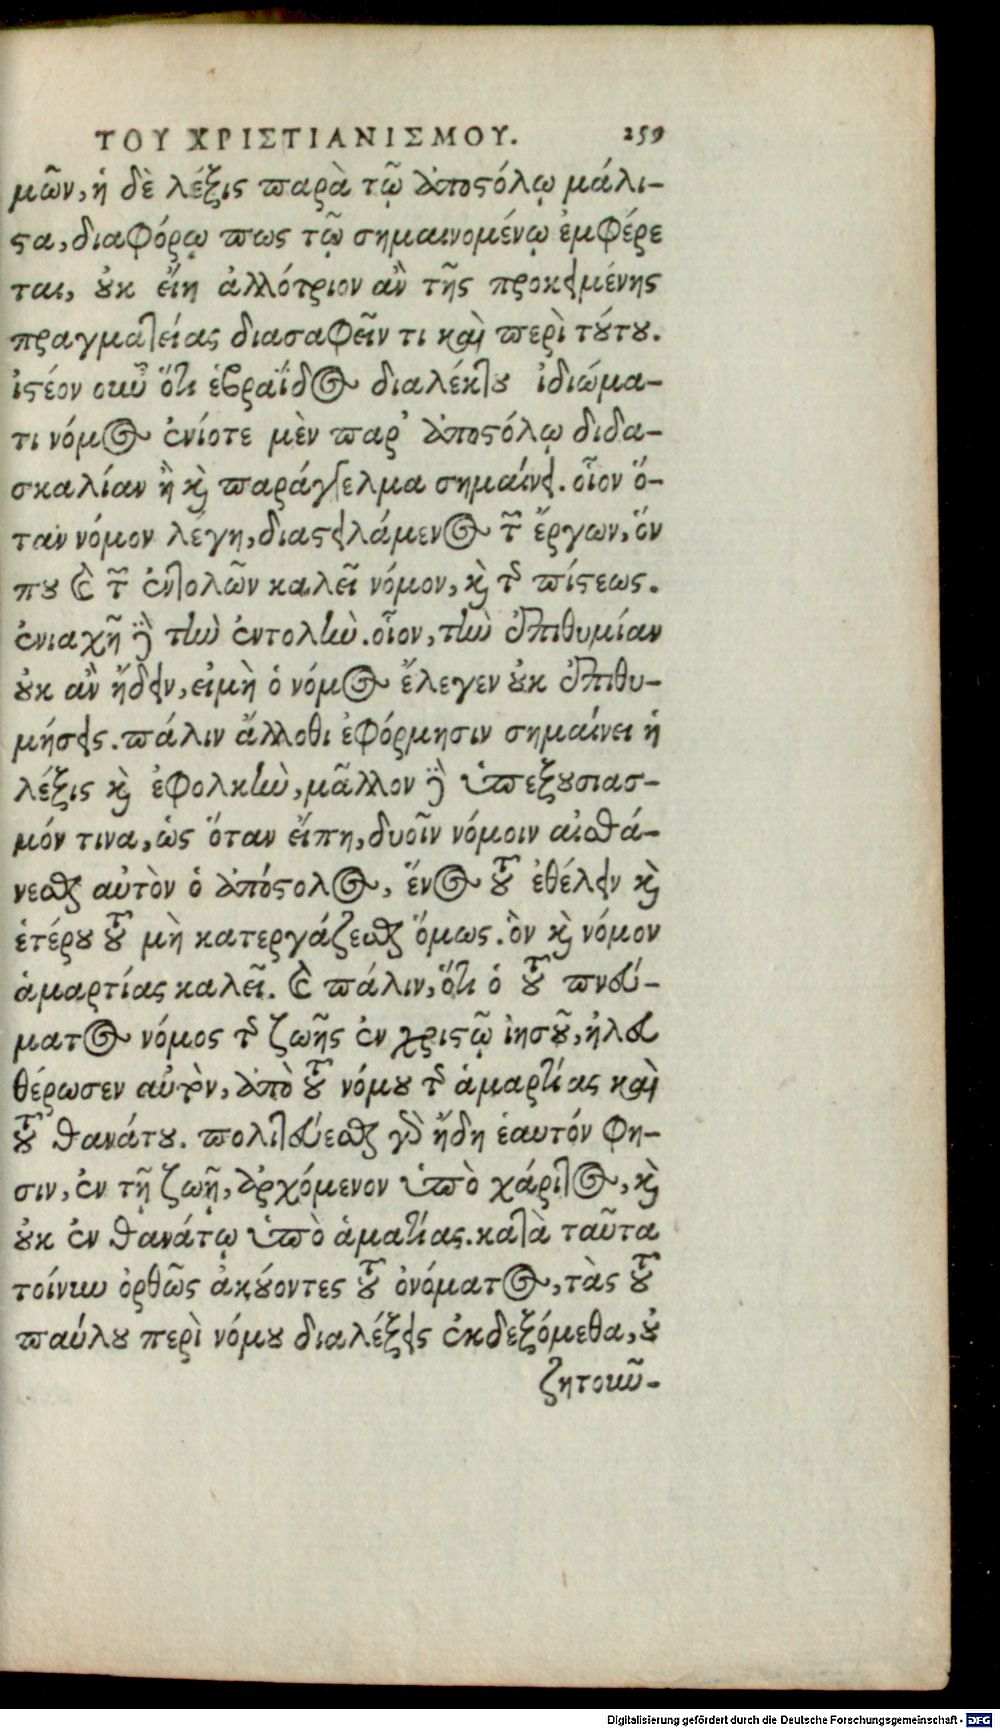 ΤΟΥ ΧΡΙΣΤΙΑΝΙΣΜΟΥ. 259
μῶν, ἡ δὲ λέξις παρὰ τῷ ἀποςόλῳ μάλι-
ςα, διαφόρῳ πως τῷ σημαινομένῳ ἐμφέρε
ται, ȣκ εἴη ἀλλότριον ἂν τῆς προκειμένης
πραγματείας διασαφεῖν τι καὶ περὶ τȣ́τȣ.
ἰςέον οὖν ὅτι ἑβραΐδος διαλέκτȣ ἰδιώμα-
τι νόμος ἐνίοτε μὲν παρ' ἀποςόλῳ διδα-
σκαλίαν ἢ καὶ παράγγελμα σημαίνει. οἷον ὅ-
ταν νόμον λέγη, διαςειλάμενος τῶν ἔργων, ὅν
πȣ καὶ τῶν ἐντολῶν καλεῖ νόμον, καὶ τῆς πίςεως.
ἐνιαχῆ δὲ τὴν ἐντολὴν. οἷον, τὴν ἐπιθυμίαν
ȣκ ἂν ἤδειν, εἰμὴ ὁ νόμος ἔλεγεν ȣκ ἐπιθυ-
μήσεις. πάλιν ἄλλοθι ἐφόρμησιν σημαίνει ἡ
λέξις καὶ ἐφολκὴν, μᾶλλον δὲ ὑπεξȣσιασ-
μόν τινα, ὡς ὅταν εἴπη, δυοῖν νόμοιν αἰσθά-
νεσθαι αὐτὸν ὁ ἀπόςολος, ἕνος τȣ͂ ἐθέλειν καὶ
ἑτέρȣ τȣ͂ μὴ κατεργάζεσθαι ὅμως. ὃν καὶ νόμον
ἁμαρτίας καλεῖ. καὶ πάλιν, ὅτι ὁ τȣ͂ πνεύ-
ματος νόμος τῆς ζωῆς ἐν χριςῷ ἰησȣ͂, ἠλευ
θέρωσεν αὐτὸν, ἀπὸ τȣ͂ νόμȣ τῆς ἁμαρτίας καὶ
τȣ͂ θανάτȣ. πολιτεύεσθαι γὰρ ἤδη ἑαυτόν φη-
σιν, ἐν τῇ ζωῇ, ἀρχόμενον ὑπὸ χάριτος, καὶ
ȣκ ἐν θανάτῳ ὑπὸ ἁματίας. κατὰ ταῦτα
τοίνυν ὀρθῶς ἀκȣ́οντες τȣ͂ ὀνόματος, τὰς τȣ͂
παύλȣ περὶ νόμȣ διαλέξεις ἐκδεξόμεθα, ȣ
ζητοῦν-
Digitalisierung gefördert durch die Deutsche Forschungsgemeinschaft - DFG